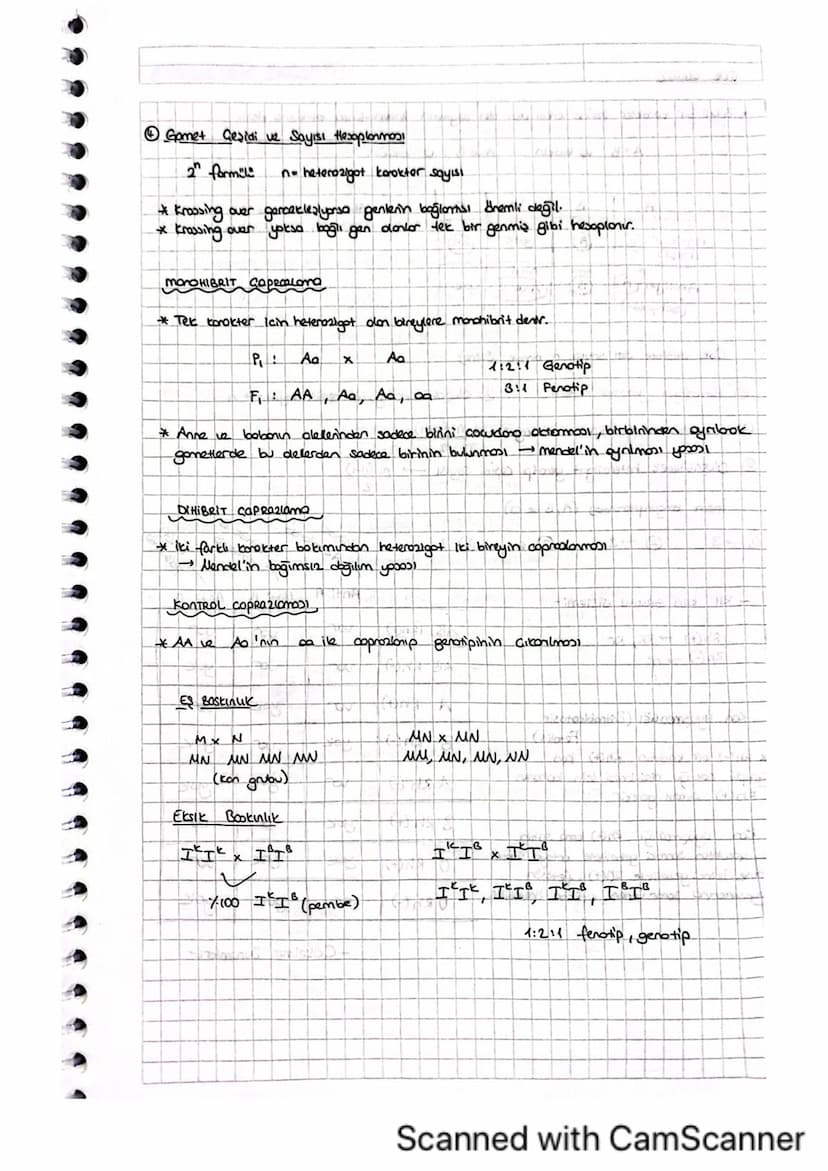 ④ Gamet Çeşidi ve Sayısı Hesaplanması
2ⁿ formülü n = heterozigot karakter sayısı
* Krossing over gerçekleşiyorsa genlerin bağlantısı önemli değil.
* Krossing over yoksa bağlı gen olanlar tek bir genmiş gibi hesaplanır.
MONOHİBRİT ÇAPRAZLAMA
* Tek karakter için heterozigot olan bireylere monohibrit denir.
P₁ : Aa x Aa
1:2:1 Genotip
F₁ : AA , Aa, Aa, aa
3:1 Fenotip
* Anne ve babanın alellerinden sadece birini çocuğuna aktarması, birbirinden ayrılarak
gametlerde bu alellerden sadece birinin bulunması → mendel'in ayrılması yasası
DİHİBRİT ÇAPRAZLAMA
* İki farklı karakter bakımından heterozigot iki bireyin çaprazlanması
→ Mendel'in bağımsız dağılım yasası
KONTROL ÇAPRAZLAMASI
* AA ve Aa 'nın aa ile çaprazlanıp genotipinin çıkarılması
EŞ BASKINLIK
M x N
MN x MN
MN MN MN MN
MM, MN, MN, NN
(kan grubu)
Eksik Baskınlık
IᴷIᴷ x IᴮIᴮ
IᴷIᴮ x IᴷIᴮ
%100 IᴷIᴮ (pembe)
IᴷIᴷ, IᴷIᴮ, IᴷIᴮ, IᴮIᴮ
1:2:1 fenotip, genotip
Scanned with CamScanner